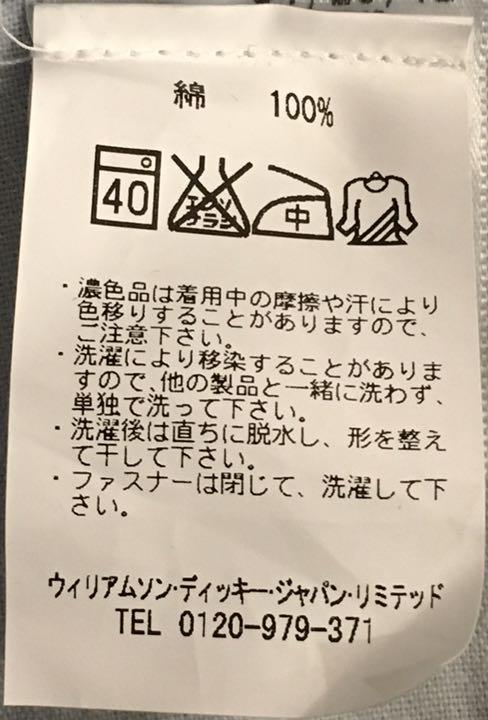 綿 100%
40
エンソ
サラシ
中
・濃色品は着用中の摩擦や汗により
色移りすることがありますので、
ご注意下さい。
・洗濯により移染することがありま
すので、他の製品と一緒に洗わず、
単独で洗って下さい。
・洗濯後は直ちに脱水し、形を整え
て干して下さい。
・ファスナーは閉じて、洗濯して下
さい。
ウィリアムソン・ディッキー・ジャパン・リミテッド
TEL 0120-979-371